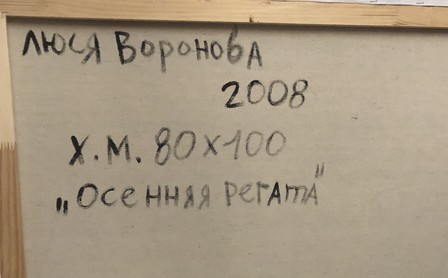 Люся Воронова
2008
Х.М. 80х100
„Осенняя регата"